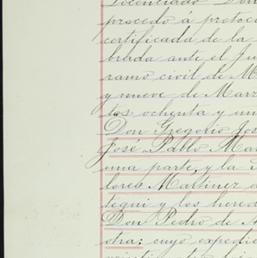 Licenciado Don
procedo á protoco
certificada de la
brada ante el Ju
ramo civil de M
y nueve de Marz
tos ochenta y un
Don Gregorio Jos
José Pablo Ma
una parte, y la
lores Martinez
tegui y los hered
Don Pedro de
otra: cuyo expedi